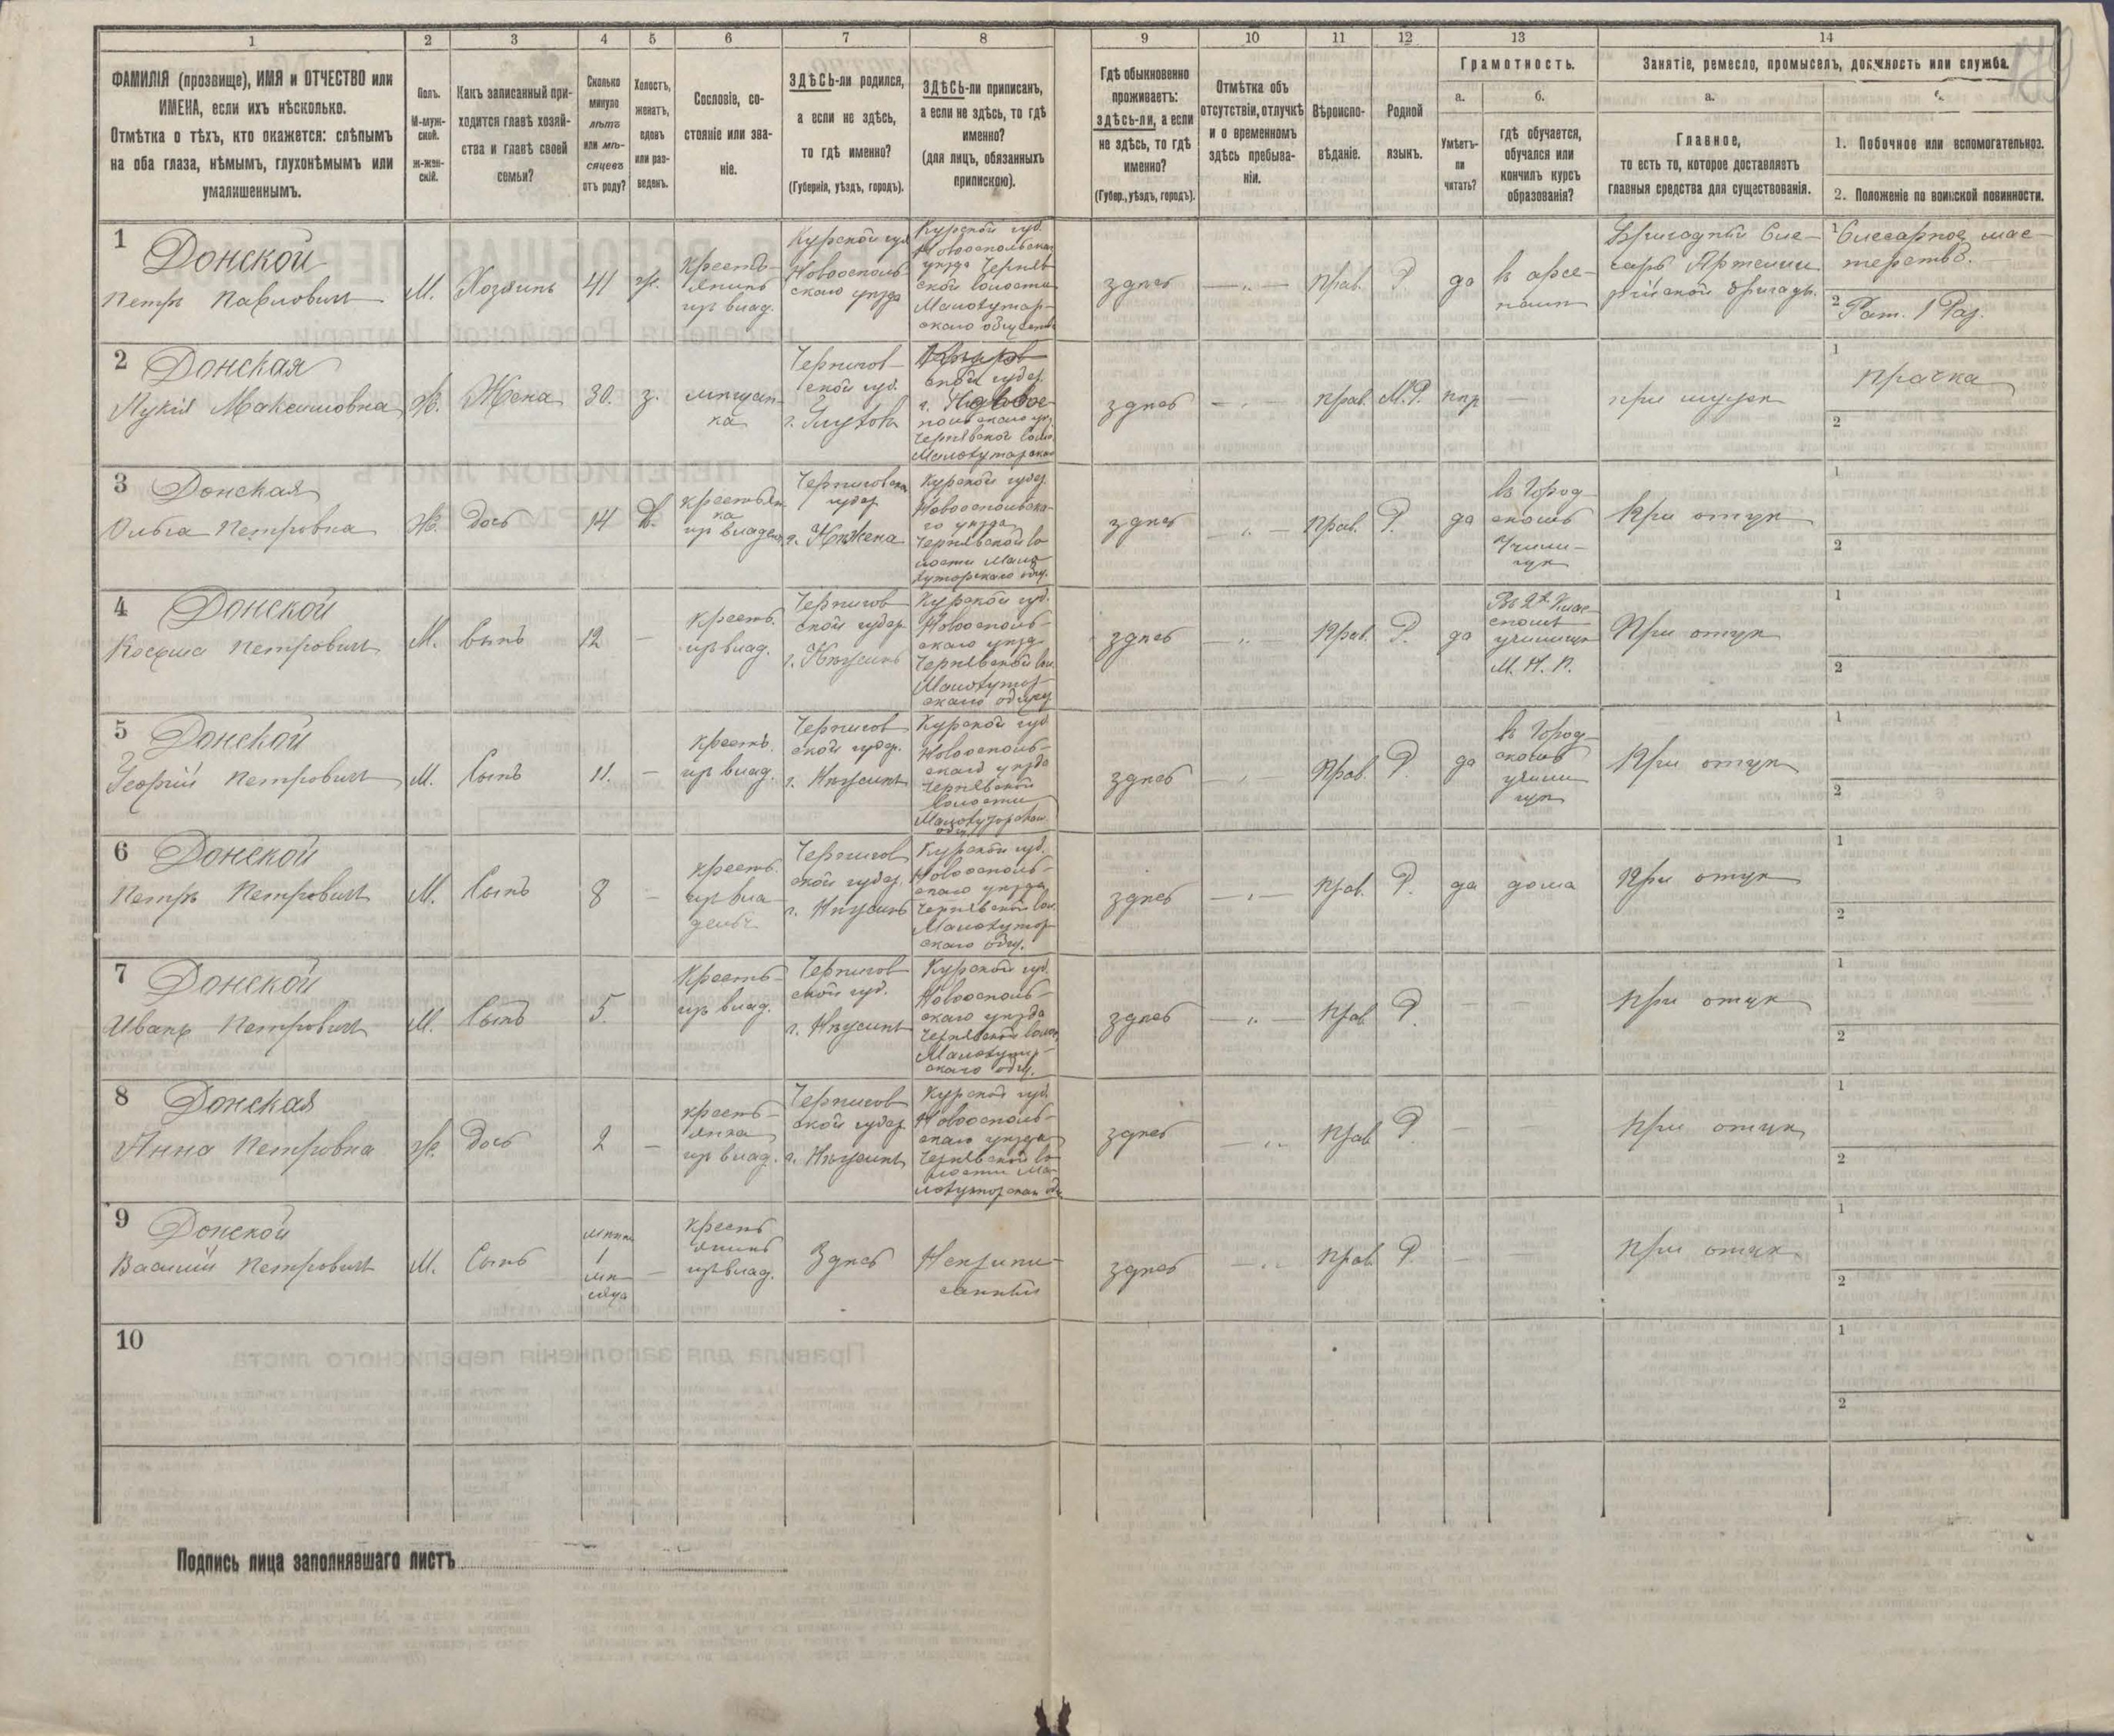 1 2 3 4 5 6 7 8 9 10 11 12 13 14
ФАМИЛІЯ (прозвище), ИМЯ и ОТЧЕСТВО или
ИМЕНА, если ихъ нѣсколько.
Отмѣтка о тѣхъ, кто окажется: слѣпымъ
на оба глаза, нѣмымъ, глухонѣмымъ или
умалишеннымъ.
Полъ.
М-муж-
ской.
Ж-жен-
скій.
Какъ записанный при-
ходится главѣ хозяй-
ства и главѣ своей
семьи?
Сколько
минуло
лѣтъ
или мѣ-
сяцевъ
отъ роду?
Холостъ,
женатъ,
вдовъ
или раз-
веденъ.
Сословіе, со-
стояніе или зва-
ніе.
ЗДѢСЬ-ли родился,
а если не здѣсь,
то гдѣ именно?
(Губернія, уѣздъ, городъ).
ЗДѢСЬ-ли приписанъ,
а если не здѣсь, то гдѣ
именно?
(для лицъ, обязанныхъ
припискою).
Гдѣ обыкновенно
проживаетъ:
здѣсь-ли, а если
не здѣсь, то гдѣ
именно?
(Губер., уѣздъ, городъ).
Отмѣтка объ
отсутствіи, отлучкѣ
и о временномъ
здѣсь пребыва-
ніи.
Вѣроиспо-
вѣданіе.
Родной
языкъ.
Грамотность.
а.
Умѣетъ-
ли
читать?
б.
гдѣ обучается,
обучался или
кончилъ курсъ
образованія?
Занятіе, ремесло, промыселъ, должность или служба.
а.
Главное,
то есть то, которое доставляетъ
главныя средства для существованія.
1. Побочное или вспомогательное.
2. Положеніе по воинской повинности.
1
Донской
Петръ Павловичъ
М.
Хозяинъ
41
ж.
кресть-
янинъ
изъ влад.
Курской губ
Новоосколь-
скаго уѣзда
Курской губ.
Новооскольскаго
уѣзда Чернян-
ской волости
Малохутор-
скаго общества
здѣсь
— „ —
прав.
Р.
да
въ арсе-
налѣ
Бригадный Сле-
сарь Артилле-
рійской бригады.
1 Слесарное мас-
терство.
2 Рат. 1 Раз.
2 Донская
Максимовна
Ж.
Жена
30.
з.
мѣщан-
ка
Чернигов-
ской губ.
г. Глухова
здѣсь
— „ —
прав.
М.Р.
нѣт
—
при мужѣ
1
прачка
2
3 Донская
Ольга Петровна
Ж.
Дочь
14
Д.
крестьян
ка
изъ владѣл.
Черниговской
губер
г. Нѣжина
Курской губер.
Новооскольска-
го уѣзда
Чернянской во
лости Мало
хуторскаго общ.
здѣсь
— „ —
прав.
Р.
да
въ Город-
скомъ
Учили-
щѣ
При отцѣ
1
2
4 Донской
Косьма Петровичъ
М.
сынъ
12
—
кресть.
изъ влад.
Чернигов-
ской губер
г. Нѣжинъ
Курской губ.
Новоосколь-
скаго уѣзда
Чернянской вол.
Малохутор-
скаго общ.
здѣсь
— „ —
Прав.
Р.
да
Въ 2х Клас-
сномъ
училищѣ
М. Н. П.
При отцѣ
1
2
5 Донской
Георгій Петровичъ
М.
Сынъ
11.
—
кресть.
изъ влад.
Чернигов
ской губер.
г. Нѣжинъ
Курской губ
Новоосколь-
скаго уѣзда
Чернянской
волости
Малохуторскаго
общ.
здѣсь
— „ —
Прав.
Р.
да
въ Город-
скомъ
учили
щѣ
При отцѣ
1
2
6 Донской
Петръ Петровичъ
М.
Сынъ
8
—
кресть.
изъ вла-
дѣльч
Чернигов
ской губер.
г. Нѣжинъ
Курской губ.
Новоосколь-
скаго уѣзда
Чернянской вол.
Малохутор-
скаго общ.
здѣсь
— „ —
прав.
Р.
да
дома
При отцѣ
1
2
7 Донской
Иванъ Петровичъ
М.
Сынъ
5.
Кресть-
изъ влад.
Чернигов
ской губ.
г. Нѣжинъ
Курской губ.
Новоосколь-
скаго уѣзда
Чернянской волос.
Малохутор-
скаго общ.
здѣсь
— „ —
прав
Р.
—
—
При отцѣ
1
2
8 Донская
Анна Петровна
ж.
Дочь
2
—
кресть-
янка
изъ влад.
Чернигов
ской губер
г. Нѣжинъ
Курской губ
Новоосколь-
скаго уѣзда
Чернянской во-
лости Ма-
лохуторскаго общ.
здѣсь
— „ —
прав
Р.
—
При отцѣ
1
2
9 Донской
Василій Петровичъ
М.
Сынъ
1
мѣ-
сяца
—
кресть
янинъ
изъ влад.
Здѣсь
Неприпи-
санный
здѣсь
— „ —
прав.
Р.
—
—
При отцѣ
1
2
10
1
2
Подпись лица заполнявшаго листъ